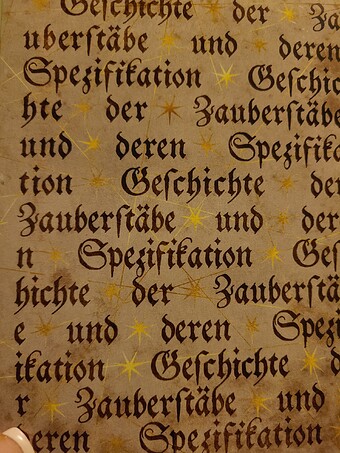 Geſchichte der Za
uberſtäbe und deren
Spezifikation Geſchic
hte der Zauberſtäbe
und deren Spezifika
tion Geſchichte der
Zauberſtäbe und dere
n Spezifikation Geſ
hichte der Zauberſtä
e und deren Spezi
ikation Geſchichte d
r Zauberſtäbe und
deren Spezifikation